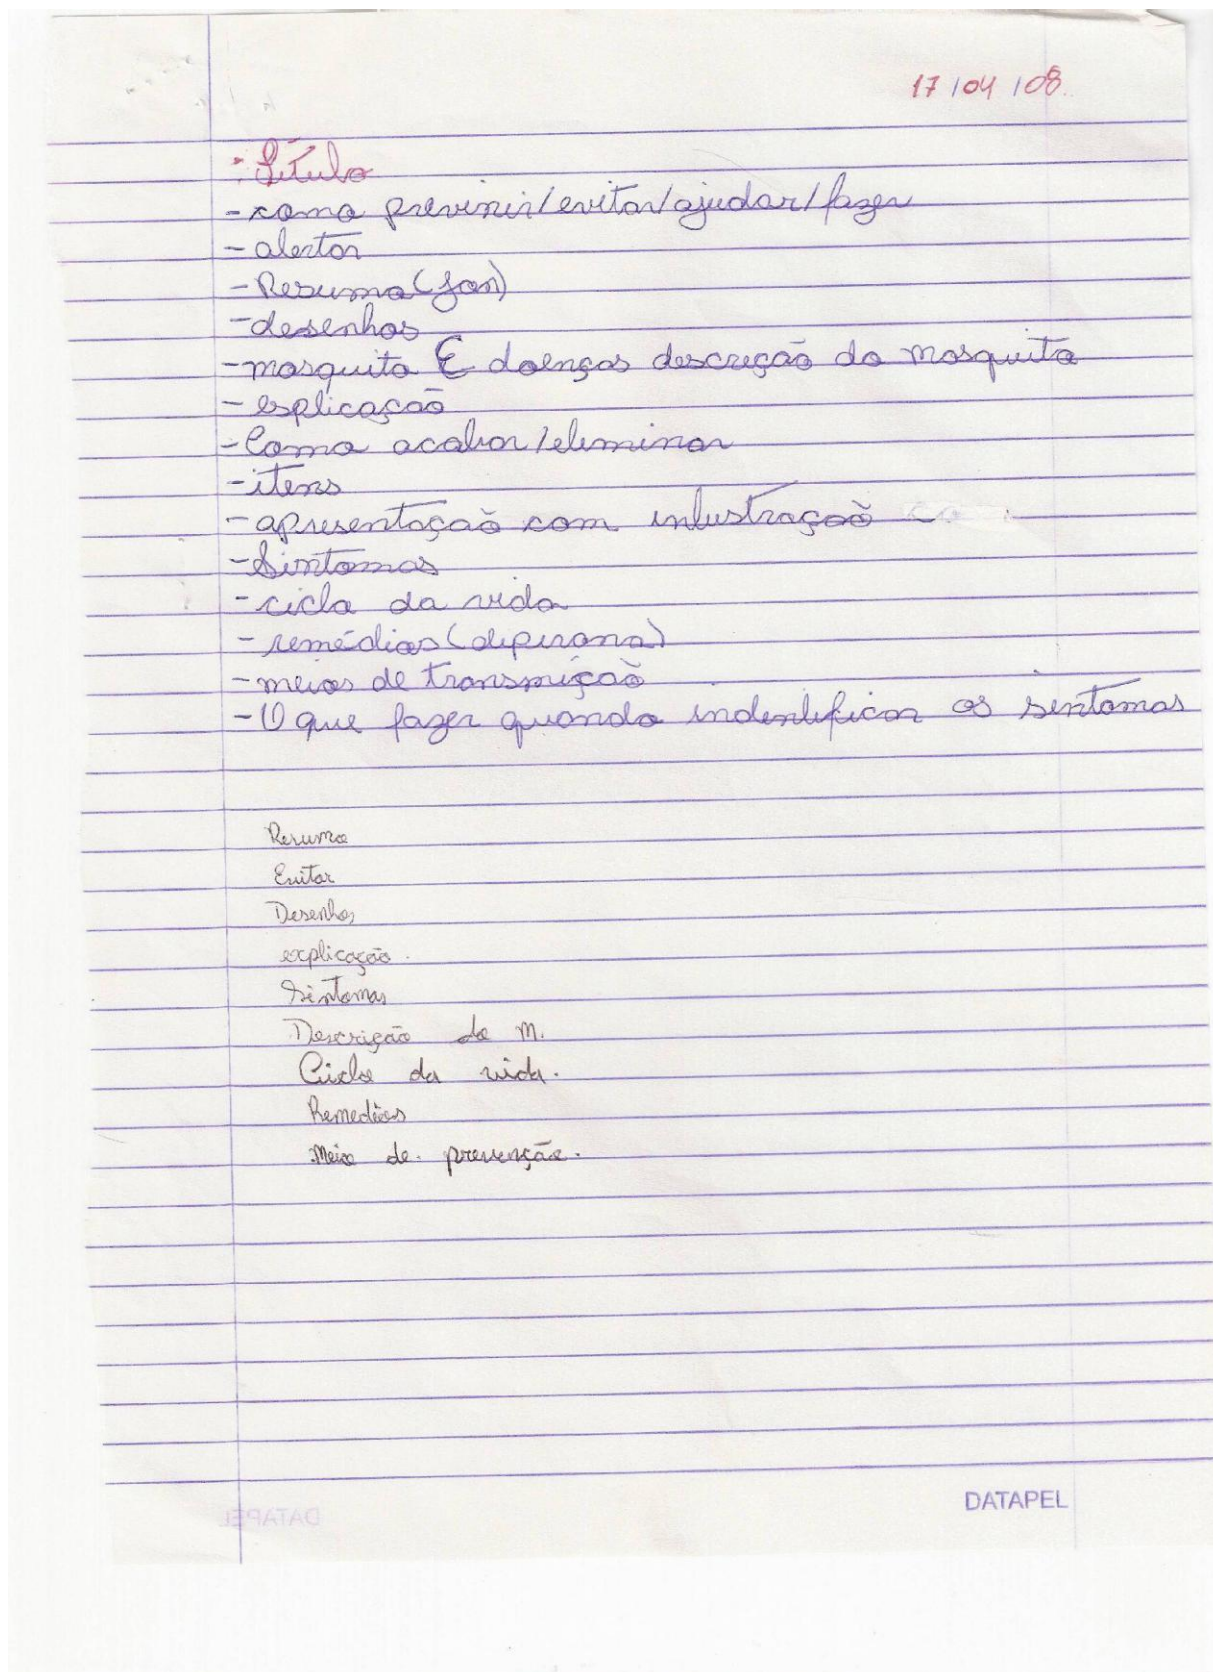 17/04/08.
: Título
- como previnir/evitar/ajudar/fazer
- alertar
- Resumo (fan)
- desenhos
- mosquito E doenças descreção do mosquito
- esplicação
- Como acabar/eliminar
- itens
- apresentação com inlustração
- Sintomas
- ciclo da vida
- remédios (dipirona)
- meios de transmição
- O que fazer quando indentificar os sintomas
Resumo
Evitar
Desenhos
explicação.
Sintomas
Descrição do M.
Ciclo da vida.
Remedios
Meio de prevenção.
DATAPEL